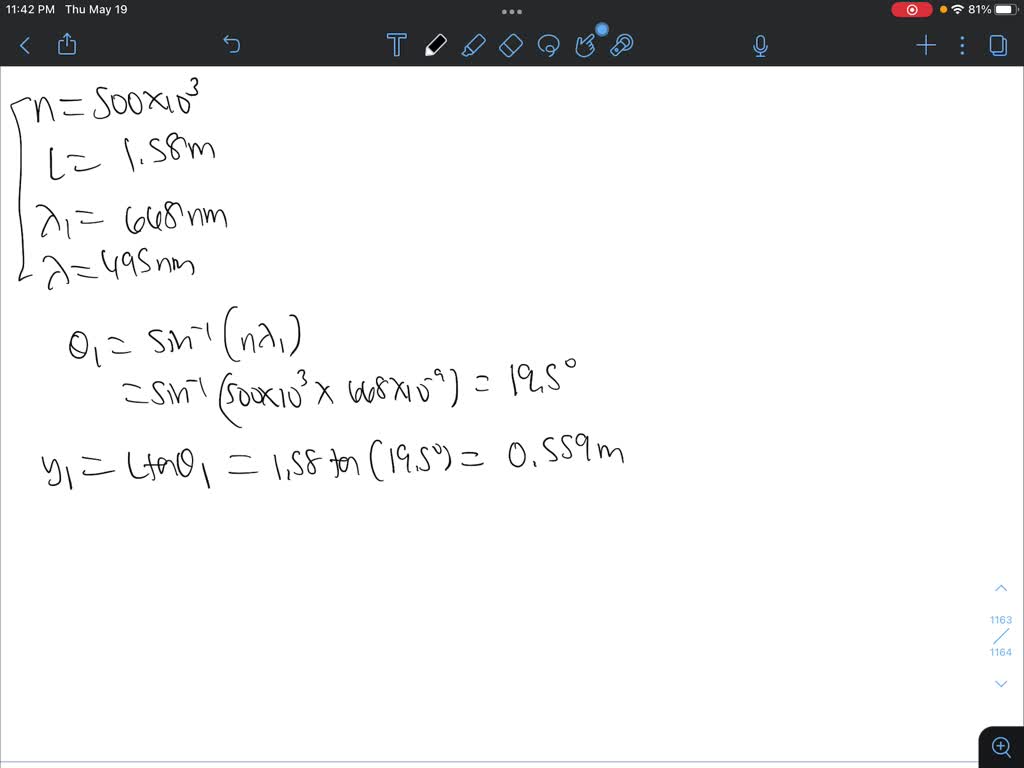 11:42 PM Thu May 19
81%
n = 500×10³
L = 1.58m
λ₁ = 668nm
λ = 495nm
θ₁ = sin⁻¹(nλ₁)
= sin⁻¹(500×10³ × 668×10⁻⁹) = 19.5°
y₁ = L tanθ₁ = 1.58 tan(19.5°) = 0.559m
1163
1164